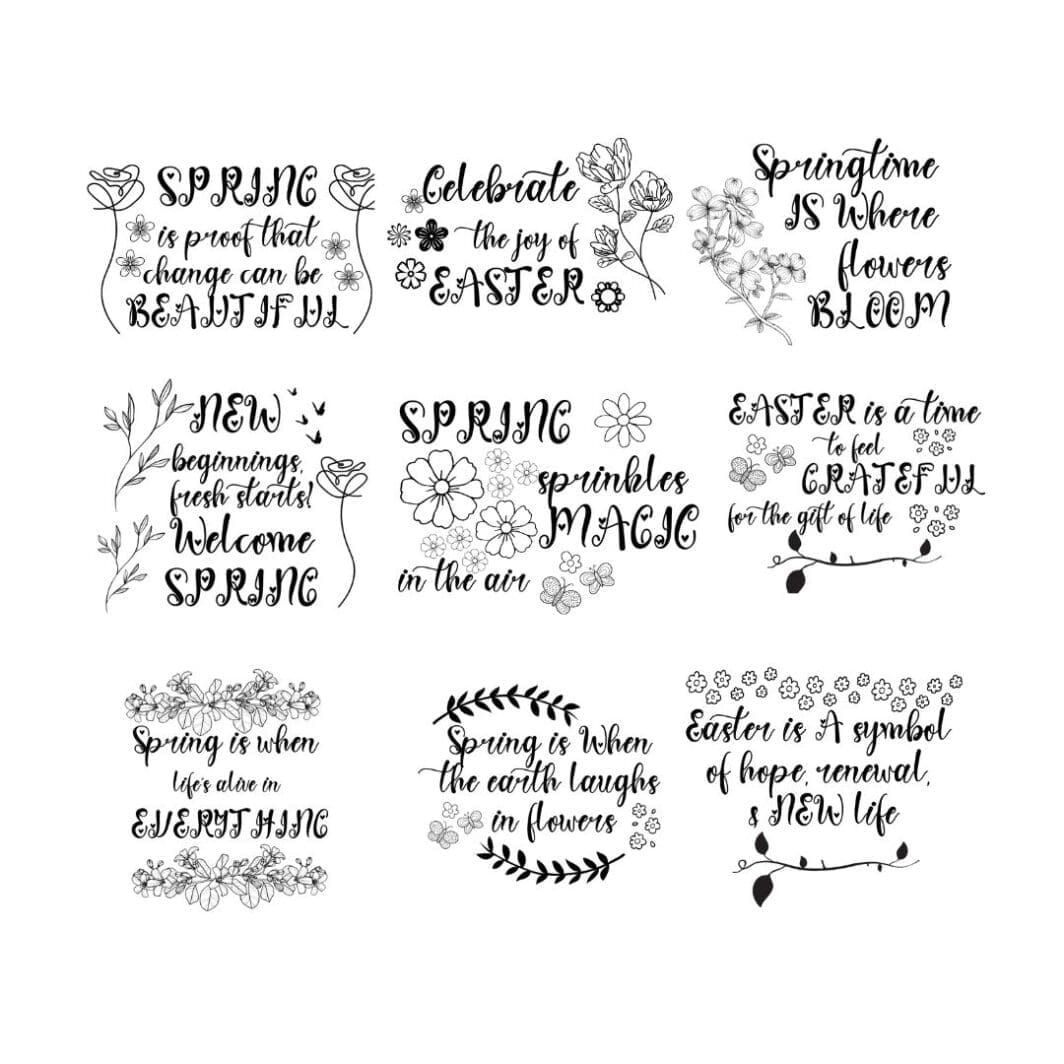 SPRING
is proof that
change can be
BEAUTIFUL
Celebrate
the joy of
EASTER
Springtime
IS Where
flowers
BLOOM
NEW
beginnings,
fresh starts!
Welcome
SPRING
SPRING
sprinkles
MAGIC
in the air
EASTER is a time
to feel
GRATEFUL
for the gift of life
Spring is when
life's alive in
EVERYTHING
Spring is When
the earth laughs
in flowers
Easter is A symbol
of hope, renewal,
& NEW life